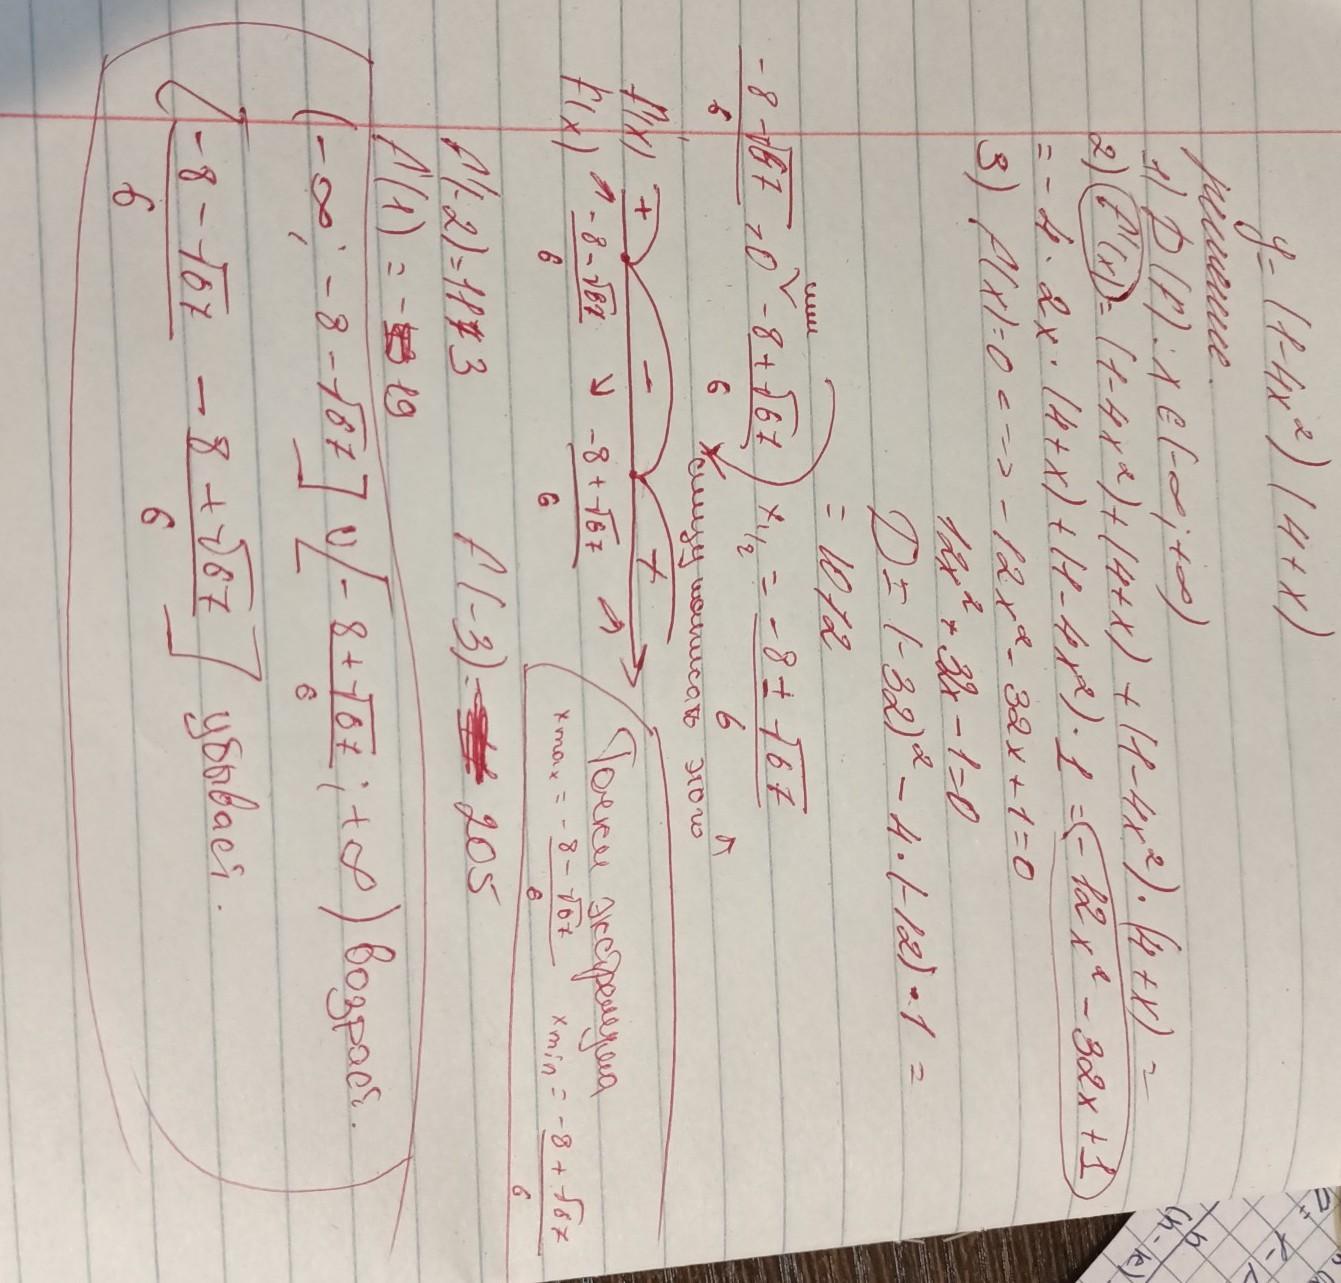 y = (1-4x²)(4+x)
решение.
1) D(f): x ∈ (-∞; +∞)
2) f'(x) = (1-4x²)'(4+x) + (1-4x²)·(4+x)' =
= -4·2x·(4+x)+(1-4x²)·1 = -12x²-32x+1
3) f'(x)=0 <=> -12x²-32x+1=0
12x²+32x-1=0
D = (-32)²-4·(-12)·1 =
= 1072
x₁,₂ = (-8±√67)/6
(-8-√67)/6 >0 ∨ (-8+√67)/6
или
этого
f'(x) + - +
f(x) ↗ (-8-√67)/6 ↘ (-8+√67)/6 ↗
Точки экстремума
xmax = (-8-√67)/6 xmin = (-8+√67)/6
f(-2)=113 f(-3)=205
f(1) = -19
(-∞; -8-√67] ∪ [(-8+√67)/6; +∞) возраст.
[(-8-√67)/6 (-8+√67)/6] убывает.